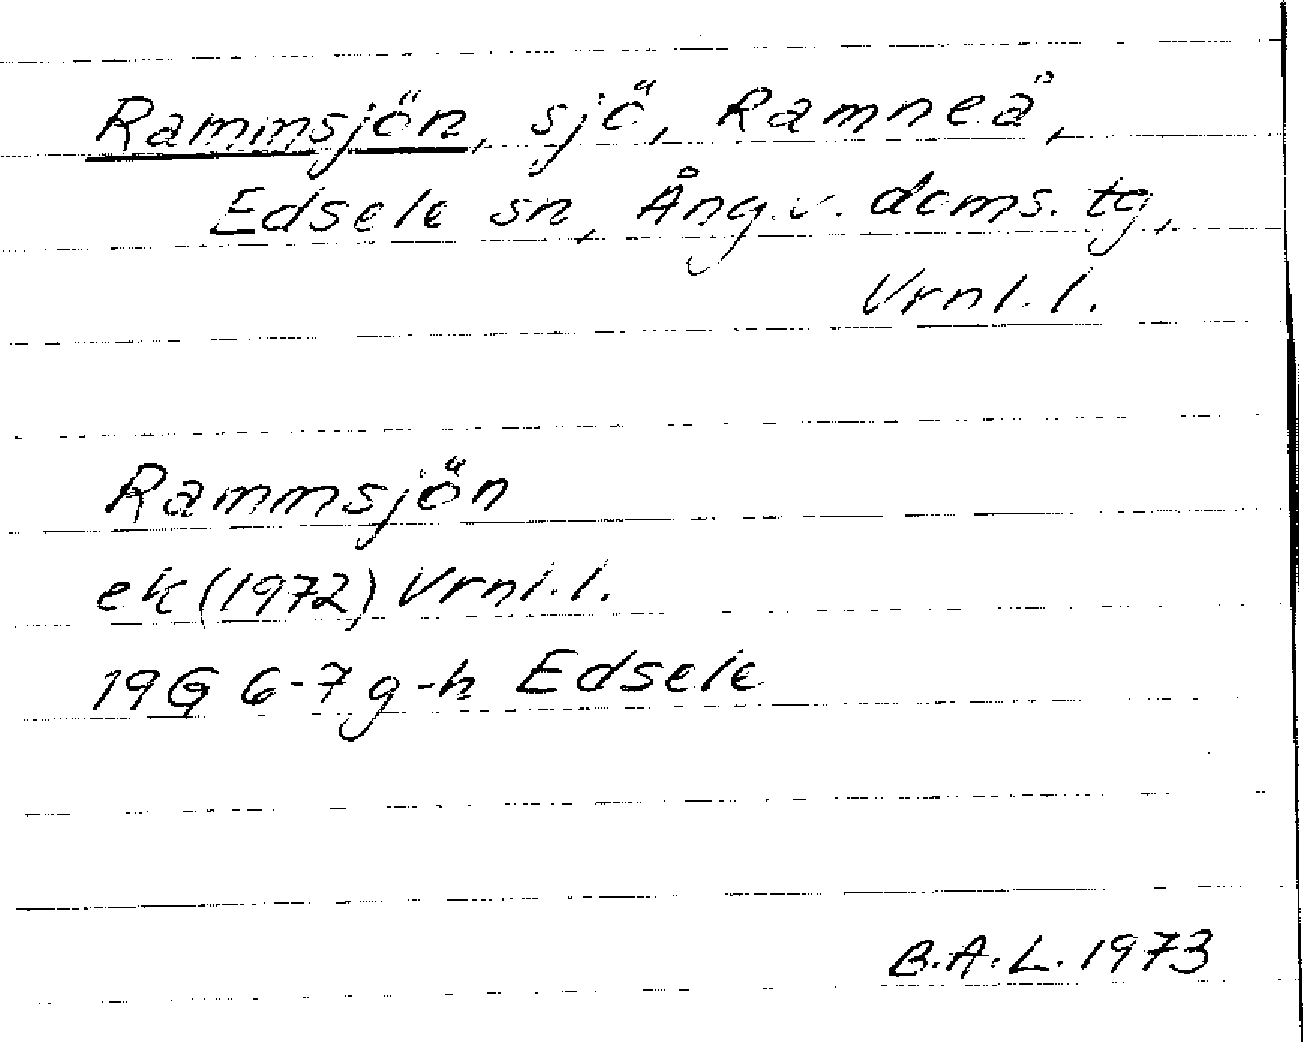 Rammsjön, sjö, Ramneå,
Edsele sn, Ång.v. doms. tg,
Vrnl. l.
Rammsjön
ek (1972) Vrnl. l.
19G 6-7 g-h Edsele
B.A.L. 1973